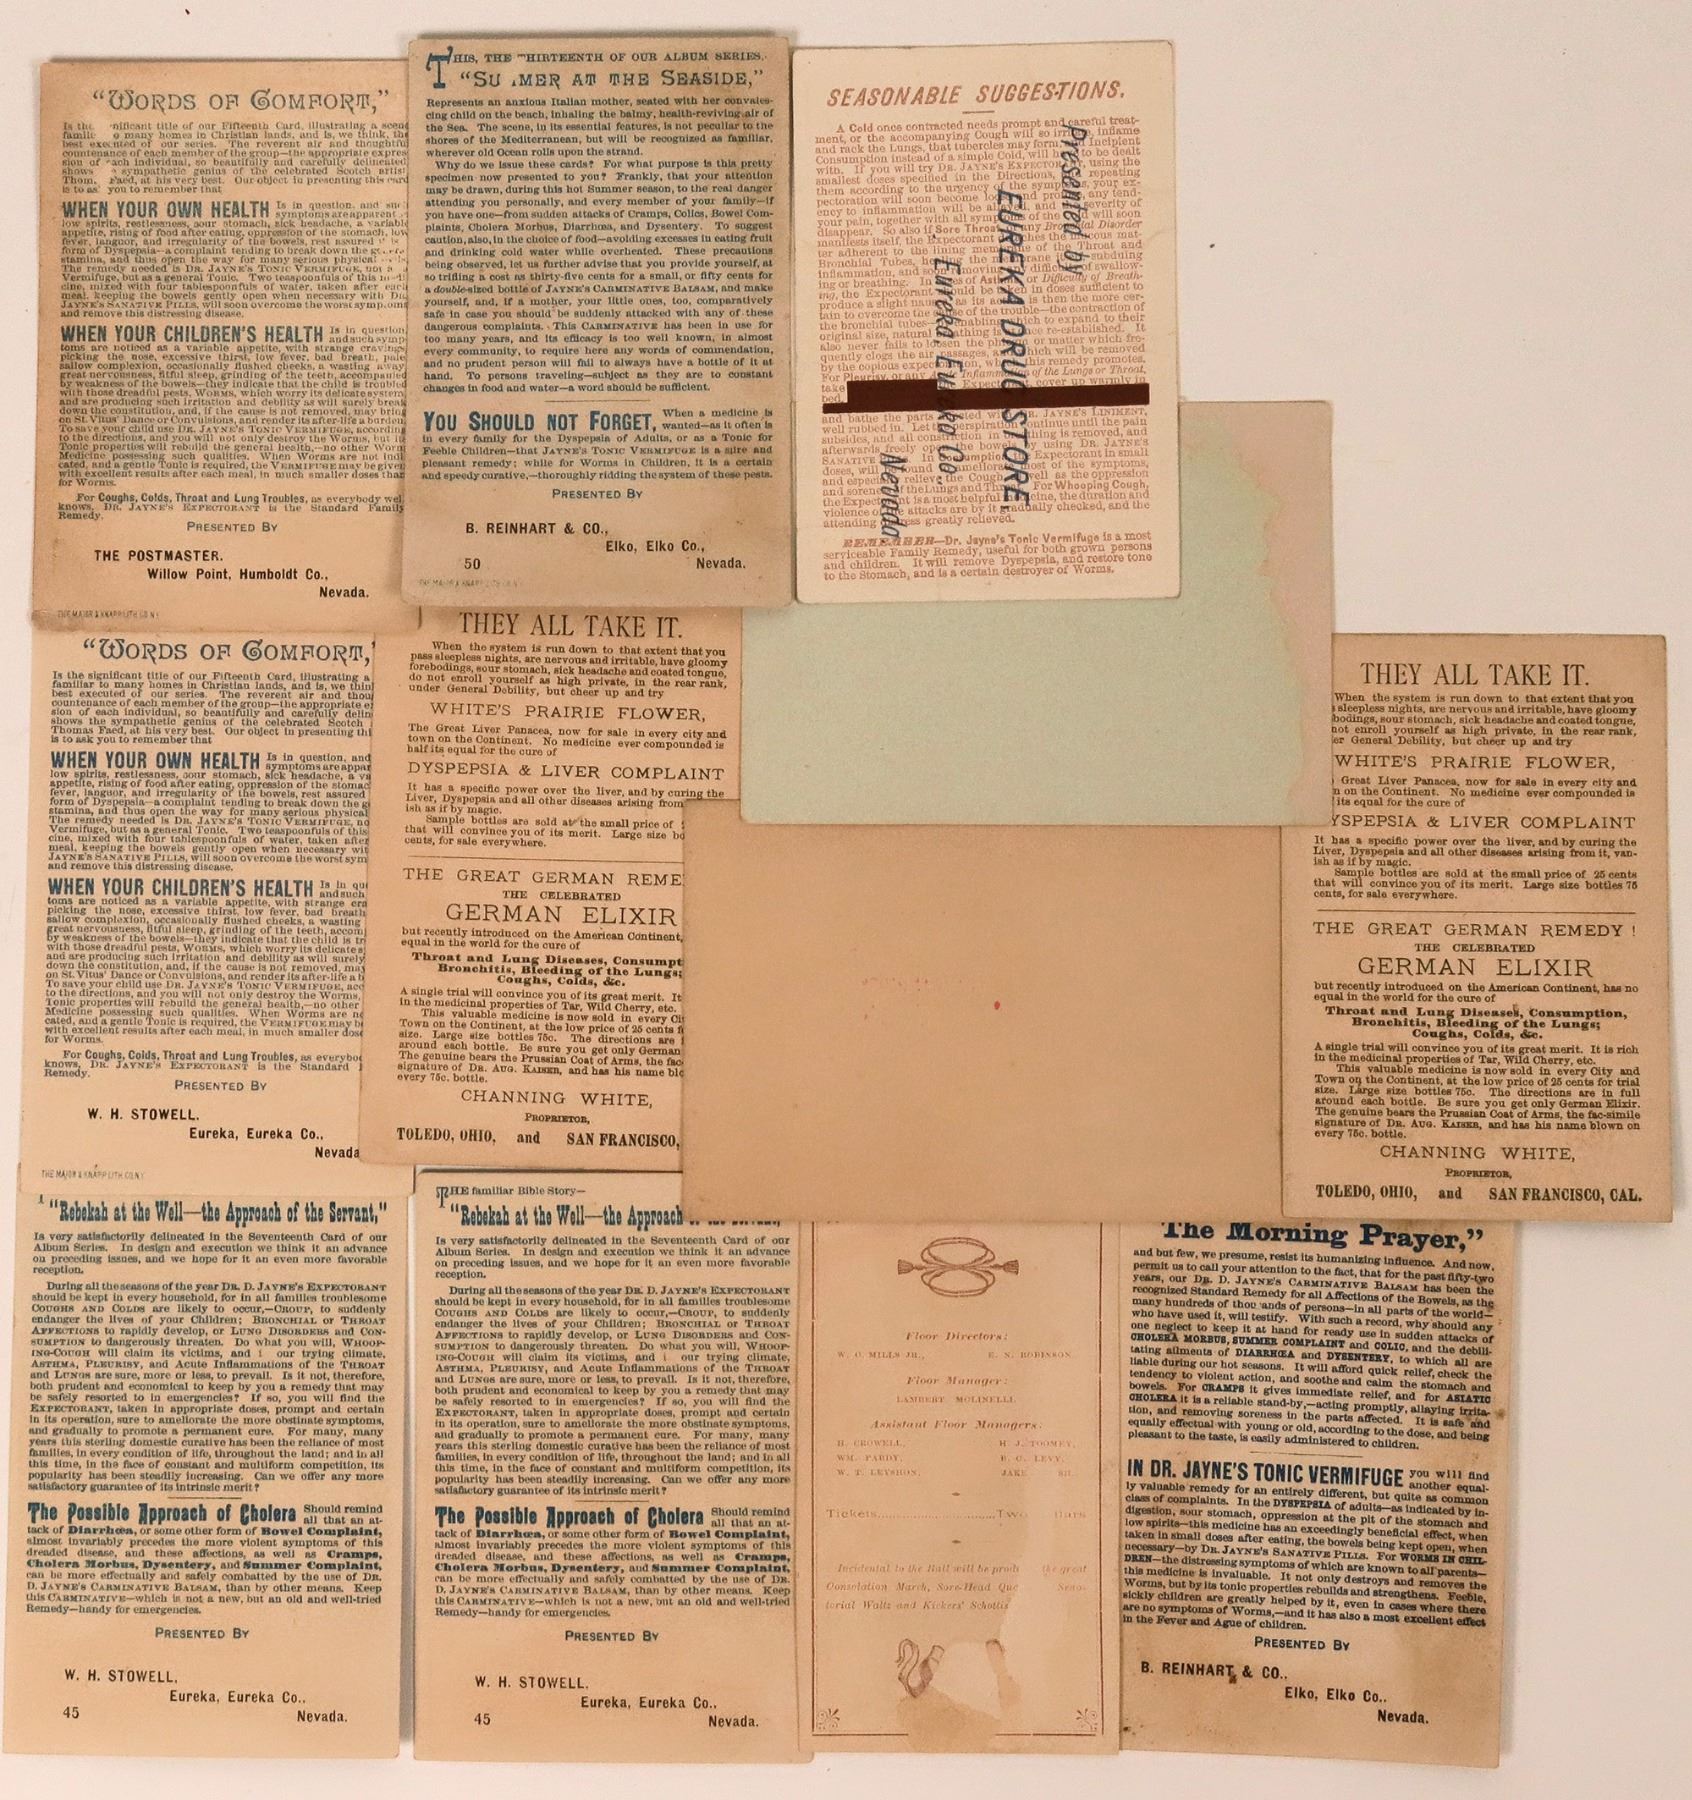 "WORDS OF COMFORT,"
nificant title of our Fifteenth Card, illustrating a scene
many homes in Christian lands, and is, we think, the
best executed of our series. The reverent air and thoughtful
countenance of each member of the group—the appropriate expres
sion of each individual, so beautifully and carefully delineated,
shows sympathetic genius of the celebrated Scotch artist
Thom. Faed, at his very best. Our object in presenting this card
is to as you to remember that
WHEN YOUR OWN HEALTH Is in question, and
symptoms are apparent
low spirits, restlessness, sour stomach, sick headache, a variable
appetite, rising of food after eating, oppression of the stomach, low
fever, languor, and irregularity of the bowels, rest assured
form of Dyspepsia—a complaint tending to break down the
stamina, and thus open the way for many serious physical
The remedy needed is DR. JAYNE'S TONIC VERMIFUGE, not a
Vermifuge, but as a general Tonic. Two teaspoonfuls of this
cine, mixed with four tablespoonfuls of water, taken after each
meal, keeping the bowels gently open when necessary with DR.
JAYNE'S SANATIVE PILLS, will soon overcome the worst symptoms
and remove this distressing disease.
WHEN YOUR CHILDREN'S HEALTH Is in question,
and such symp
toms are noticed as a variable appetite, with strange cravings,
picking the nose, excessive thirst, low fever, bad breath, pale
sallow complexion, occasionally flushed cheeks, a wasting away
great nervousness, fitful sleep, grinding of the teeth, accompanied
by weakness of the bowels—they indicate that the child is troubled
with those dreadful pests, WORMS, which worry its delicate system,
and are producing such irritation and debility as will surely break
down the constitution, and, if the cause is not removed, may bring
on St. Vitus' Dance or Convulsions, and render its after-life a burden.
To save your child use DR. JAYNE'S TONIC VERMIFUGE, according
to the directions, and you will not only destroy the Worms, but its
Tonic properties will rebuild the general health,—no other Worm
Medicine possessing such qualities. When Worms are not indi
cated, and a gentle Tonic is required, the VERMIFUGE may be given
with excellent results after each meal, in much smaller doses than
for Worms.
For Coughs, Colds, Throat and Lung Troubles, as everybody well
knows, DR. JAYNE'S EXPECTORANT is the Standard Family
Remedy.
PRESENTED BY
THE POSTMASTER.
Willow Point, Humboldt Co.,
Nevada.
THE MAJOR & KNAPP LITH. CO. N.Y.
THIS, THE THIRTEENTH OF OUR ALBUM SERIES,
"SU MER AT THE SEASIDE,"
Represents an anxious Italian mother, seated with her convales-
cing child on the beach, inhaling the balmy, health-reviving air of
the Sea. The scene, in its essential features, is not peculiar to the
shores of the Mediterranean, but will be recognized as familiar,
wherever old Ocean rolls upon the strand.
Why do we issue these cards? For what purpose is this pretty
specimen now presented to you? Frankly, that your attention
may be drawn, during this hot Summer season, to the real danger
attending you personally, and every member of your family—if
you have one—from sudden attacks of Cramps, Colics, Bowel Com-
plaints, Cholera Morbus, Diarrhœa, and Dysentery. To suggest
caution, also, in the choice of food—avoiding excesses in eating fruit
and drinking cold water while overheated. These precautions
being observed, let us further advise that you provide yourself, at
so trifling a cost as thirty-five cents for a small, or fifty cents for
a double-sized bottle of JAYNE'S CARMINATIVE BALSAM, and make
yourself, and, if a mother, your little ones, too, comparatively
safe in case you should be suddenly attacked with any of these
dangerous complaints. This CARMINATIVE has been in use for
too many years, and its efficacy is too well known, in almost
every community, to require here any words of commendation,
and no prudent person will fail to always have a bottle of it at
hand. To persons traveling—subject as they are to constant
changes in food and water—a word should be sufficient.
YOU SHOULD NOT FORGET, When a medicine is
wanted—as it often is
in every family for the Dyspepsia of Adults, or as a Tonic for
Feeble Children—that JAYNE'S TONIC VERMIFUGE is a sure and
pleasant remedy; while for Worms in Children, it is a certain
and speedy curative,—thoroughly ridding the system of these pests.
PRESENTED BY
B. REINHART & CO.,
Elko, Elko Co.,
50 Nevada.
THE MAJOR & KNAPP
SEASONABLE SUGGESTIONS.
A Cold once contracted needs prompt and careful treat-
ment, or the accompanying Cough will so irritate, inflame
and rack the Lungs, that tubercles may form, and Incipient
Consumption instead of a simple Cold, will have to be dealt
with. If you will try DR. JAYNE'S EXPECTORANT, using the
smallest doses specified in the Directions, repeating
them according to the urgency of the symptoms, your ex-
pectoration will soon become loose and free, any tend-
ency to inflammation will be allayed, and the severity of
your pain, together with all symptoms of the cold will soon
disappear. So also if Sore Throat or any Bronchial Disorder
manifests itself, the Expectorant reaches the mucous mat-
ter adherent to the lining membrane of the Throat and
Bronchial Tubes, subduing
inflammation, and soon removing difficulty of swallow-
ing or breathing. In cases of Asthma or Difficulty of Breath-
ing, the Expectorant should be taken in doses sufficient to
produce a slight nausea, as its action is then the more cer-
tain to overcome the cause of the trouble—the contraction of
the bronchial tubes—enabling which to expand to their
original size, natural breathing is re-established. It
also never fails to loosen the phlegm or matter which fre-
quently clogs the air passages, and which will be removed
by the copious expectoration, which this remedy promotes.
For Pleurisy, or any Inflammation of the Lungs or Throat,
take Expectorant, cover up warmly in
bed,
and bathe the parts affected with DR. JAYNE'S LINIMENT,
well rubbed in. Let the perspiration continue until the pain
subsides, and all constriction of breathing is removed, and
afterwards freely open the bowels by using DR. JAYNE'S
SANATIVE In Consumption Expectorant in small
doses, will be found to ameliorate most of the symptoms,
and especially relieve the Cough, as well as the oppression
and soreness of the Lungs and Throat. For Whooping Cough,
the Expectorant is a most helpful medicine, the duration and
violence of the attacks are by it gradually checked, and the
attending distress greatly relieved.
REMEMBER—Dr. Jayne's Tonic Vermifuge is a most
serviceable Family Remedy, useful for both grown persons
and children. It will remove Dyspepsia, and restore tone
to the Stomach, and is a certain destroyer of Worms.
Presented by
EUREKA DRUG STORE
Eureka, Eureka Co.
Nevada
"WORDS OF COMFORT,"
Is the significant title of our Fifteenth Card, illustrating a
familiar to many homes in Christian lands, and is, we thin
best executed of our series. The reverent air and thou
countenance of each member of the group—the appropriate e
sion of each individual, so beautifully and carefully delin
shows the sympathetic genius of the celebrated Scotch
Thomas Faed, at his very best. Our object in presenting thi
is to ask you to remember that
WHEN YOUR OWN HEALTH Is in question, and
symptoms are appar
low spirits, restlessness, sour stomach, sick headache, a va
appetite, rising of food after eating, oppression of the stomac
fever, languor, and irregularity of the bowels, rest assured
form of Dyspepsia—a complaint tending to break down the g
stamina, and thus open the way for many serious physical
The remedy needed is DR. JAYNE'S TONIC VERMIFUGE, no
Vermifuge, but as a general Tonic. Two teaspoonfuls of this
cine, mixed with four tablespoonfuls of water, taken after
meal, keeping the bowels gently open when necessary wit
JAYNE'S SANATIVE PILLS, will soon overcome the worst sym
and remove this distressing disease.
WHEN YOUR CHILDREN'S HEALTH Is in qu
and such
toms are noticed as a variable appetite, with strange cra
picking the nose, excessive thirst, low fever, bad breath
sallow complexion, occasionally flushed cheeks, a wasting
great nervousness, fitful sleep, grinding of the teeth, accom
by weakness of the bowels—they indicate that the child is tr
with those dreadful pests, WORMS, which worry its delicate s
and are producing such irritation and debility as will surely
down the constitution, and, if the cause is not removed, may
on St. Vitus' Dance or Convulsions, and render its after-life a b
To save your child use DR. JAYNE'S TONIC VERMIFUGE, acc
to the directions, and you will not only destroy the Worms,
Tonic properties will rebuild the general health,—no other
Medicine possessing such qualities. When Worms are no
cated, and a gentle Tonic is required, the VERMIFUGE may b
with excellent results after each meal, in much smaller dose
for Worms.
For Coughs, Colds, Throat and Lung Troubles, as everybod
knows, DR. JAYNE'S EXPECTORANT is the Standard
Remedy.
PRESENTED BY
W. H. STOWELL.
Eureka, Eureka Co.,
Nevada
THE MAJOR & KNAPP LITH. CO. N.Y.
THEY ALL TAKE IT.
When the system is run down to that extent that you
pass sleepless nights, are nervous and irritable, have gloomy
forebodings, sour stomach, sick headache and coated tongue,
do not enroll yourself as high private, in the rear rank,
under General Debility, but cheer up and try
WHITE'S PRAIRIE FLOWER,
The Great Liver Panacea, now for sale in every city and
town on the Continent. No medicine ever compounded is
half its equal for the cure of
DYSPEPSIA & LIVER COMPLAINT
It has a specific power over the liver, and by curing the
Liver, Dyspepsia and all other diseases arising from
ish as if by magic.
Sample bottles are sold at the small price of
that will convince you of its merit. Large size bo
cents, for sale everywhere.
THE GREAT GERMAN REME
THE CELEBRATED
GERMAN ELIXIR
but recently introduced on the American Continent,
equal in the world for the cure of
Throat and Lung Diseases, Consumpt
Bronchitis, Bleeding of the Lungs;
Coughs, Colds, &c.
A single trial will convince you of its great merit. It
in the medicinal properties of Tar, Wild Cherry, etc.
This valuable medicine is now sold in every Ci
Town on the Continent, at the low price of 25 cents f
size. Large size bottles 75c. The directions are
around each bottle. Be sure you get only German
The genuine bears the Prussian Coat of Arms, the fac
signature of DR. AUG. KAISER, and has his name blo
every 75c. bottle.
CHANNING WHITE,
PROPRIETOR,
TOLEDO, OHIO, and SAN FRANCISCO,
THEY ALL TAKE IT.
When the system is run down to that extent that you
sleepless nights, are nervous and irritable, have gloomy
bodings, sour stomach, sick headache and coated tongue,
not enroll yourself as high private, in the rear rank,
er General Debility, but cheer up and try
WHITE'S PRAIRIE FLOWER,
Great Liver Panacea, now for sale in every city and
n on the Continent. No medicine ever compounded is
its equal for the cure of
YSPEPSIA & LIVER COMPLAINT
It has a specific power over the liver, and by curing the
Liver, Dyspepsia and all other diseases arising from it, van-
ish as if by magic.
Sample bottles are sold at the small price of 25 cents
that will convince you of its merit. Large size bottles 75
cents, for sale everywhere.
THE GREAT GERMAN REMEDY!
THE CELEBRATED
GERMAN ELIXIR
but recently introduced on the American Continent, has no
equal in the world for the cure of
Throat and Lung Diseases, Consumption,
Bronchitis, Bleeding of the Lungs;
Coughs, Colds, &c.
A single trial will convince you of its great merit. It is rich
in the medicinal properties of Tar, Wild Cherry, etc.
This valuable medicine is now sold in every City and
Town on the Continent, at the low price of 25 cents for trial
size. Large size bottles 75c. The directions are in full
around each bottle. Be sure you get only German Elixir.
The genuine bears the Prussian Coat of Arms, the fac-simile
signature of DR. AUG. KAISER, and has his name blown on
every 75c. bottle.
CHANNING WHITE,
PROPRIETOR,
TOLEDO, OHIO, and SAN FRANCISCO, CAL.
"Rebekah at the Well—the Approach of the Servant,"
Is very satisfactorily delineated in the Seventeenth Card of our
Album Series. In design and execution we think it an advance
on preceding issues, and we hope for it an even more favorable
reception.
During all the seasons of the year DR. D. JAYNE'S EXPECTORANT
should be kept in every household, for in all families troublesome
COUGHS AND COLDS are likely to occur,—CROUP, to suddenly
endanger the lives of your Children; BRONCHIAL or THROAT
AFFECTIONS to rapidly develop, or LUNG DISORDERS and CON-
SUMPTION to dangerously threaten. Do what you will, WHOOP-
ING-COUGH will claim its victims, and i our trying climate,
ASTHMA, PLEURISY, and Acute Inflammations of the THROAT
and LUNGS are sure, more or less, to prevail. Is it not, therefore,
both prudent and economical to keep by you a remedy that may
be safely resorted to in emergencies? If so, you will find the
EXPECTORANT, taken in appropriate doses, prompt and certain
in its operation, sure to ameliorate the more obstinate symptoms,
and gradually to promote a permanent cure. For many, many
years this sterling domestic curative has been the reliance of most
families, in every condition of life, throughout the land; and in all
this time, in the face of constant and multiform competition, its
popularity has been steadily increasing. Can we offer any more
satisfactory guarantee of its intrinsic merit?
The Possible Approach of Cholera Should remind
all that an at-
tack of Diarrhœa, or some other form of Bowel Complaint,
almost invariably precedes the more violent symptoms of this
dreaded disease, and these affections, as well as Cramps,
Cholera Morbus, Dysentery, and Summer Complaint,
can be more effectually and safely combatted by the use of DR.
D. JAYNE'S CARMINATIVE BALSAM, than by other means. Keep
this CARMINATIVE—which is not a new, but an old and well-tried
Remedy—handy for emergencies.
PRESENTED BY
W. H. STOWELL,
Eureka, Eureka Co.,
45 Nevada.
THE familiar Bible Story—
"Rebekah at the Well—the Approach
Is very satisfactorily delineated in the Seventeenth Card of our
Album Series. In design and execution we think it an advance
on preceding issues, and we hope for it an even more favorable
reception.
During all the seasons of the year DR. D. JAYNE'S EXPECTORANT
should be kept in every household, for in all families troublesome
COUGHS AND COLDS are likely to occur,—CROUP, to suddenly
endanger the lives of your Children; BRONCHIAL or THROAT
AFFECTIONS to rapidly develop, or LUNG DISORDERS and CON-
SUMPTION to dangerously threaten. Do what you will, WHOOP-
ING-COUGH will claim its victims, and i our trying climate,
ASTHMA, PLEURISY, and Acute Inflammations of the THROAT
and LUNGS are sure, more or less, to prevail. Is it not, therefore,
both prudent and economical to keep by you a remedy that may
be safely resorted to in emergencies? If so, you will find the
EXPECTORANT, taken in appropriate doses, prompt and certain
in its operation, sure to ameliorate the more obstinate symptoms,
and gradually to promote a permanent cure. For many, many
years this sterling domestic curative has been the reliance of most
families, in every condition of life, throughout the land; and in all
this time, in the face of constant and multiform competition, its
popularity has been steadily increasing. Can we offer any more
satisfactory guarantee of its intrinsic merit?
The Possible Approach of Cholera Should remind
all that an at-
tack of Diarrhœa, or some other form of Bowel Complaint,
almost invariably precedes the more violent symptoms of this
dreaded disease, and these affections, as well as Cramps,
Cholera Morbus, Dysentery, and Summer Complaint,
can be more effectually and safely combatted by the use of DR.
D. JAYNE'S CARMINATIVE BALSAM, than by other means. Keep
this CARMINATIVE—which is not a new, but an old and well-tried
Remedy—handy for emergencies.
PRESENTED BY
W. H. STOWELL,
Eureka, Eureka Co.,
45 Nevada.
Floor Directors:
W. O. MILLS JR., E. N. ROBINSON.
Floor Manager:
LAMBERT MOLINELLI
Assistant Floor Managers:
H. CROWELL, H. J. TOOMEY,
WM. PARDY, B. C. LEVY,
W. T. LEYSHON, JAKE
Tickets Two
Incidental to the Ball will be prod the great
Consolation March, Sore-Head Qua Sena-
torial Waltz and Kickers' Schottis
The Morning Prayer,"
and but few, we presume, resist its humanizing influence. And now,
permit us to call your attention to the fact, that for the past fifty-two
years, our DR. D. JAYNE'S CARMINATIVE BALSAM has been the
recognized Standard Remedy for all Affections of the Bowels, as the
many hundreds of thou ands of persons—in all parts of the world—
who have used it, will testify. With such a record, why should any
one neglect to keep it at hand for ready use in sudden attacks of
CHOLERA MORBUS, SUMMER COMPLAINT and COLIC, and the debili-
tating ailments of DIARRHŒA and DYSENTERY, to which all are
liable during our hot seasons. It will afford quick relief, check the
tendency to violent action, and soothe and calm the stomach and
bowels. For CRAMPS it gives immediate relief, and for ASIATIC
CHOLERA it is a reliable stand-by,—acting promptly, allaying irrita-
tion, and removing soreness in the parts affected. It is safe and
equally effectual with young or old, according to the dose, and being
pleasant to the taste, is easily administered to children.
IN DR. JAYNE'S TONIC VERMIFUGE you will find
another equal-
ly valuable remedy for an entirely different, but quite as common
class of complaints. In the DYSPEPSIA of adults—as indicated by in-
digestion, sour stomach, oppression at the pit of the stomach and
low spirits—this medicine has an exceedingly beneficial effect, when
taken in small doses after eating, the bowels being kept open, when
necessary—by DR. JAYNE'S SANATIVE PILLS. For WORMS IN CHIL-
DREN—the distressing symptoms of which are known to all parents—
this medicine is invaluable. It not only destroys and removes the
Worms, but by its tonic properties rebuilds and strengthens. Feeble,
sickly children are greatly helped by it, even in cases where there
are no symptoms of Worms,—and it has also a most excellent effect
in the Fever and Ague of children.
PRESENTED BY
B. REINHART & CO.,
Elko, Elko Co.,
Nevada.